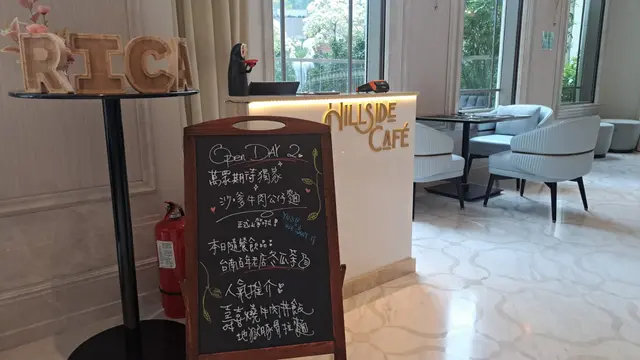 RICA
HILLSIDE
CAFÉ
Open DAY 2
萬眾期待獨家
沙爹牛肉公仔麵
本日隨餐飲品：
台南百年老店冬瓜茶
人氣推介
喜燒牛肉丼飯
地獄豚骨拉麵